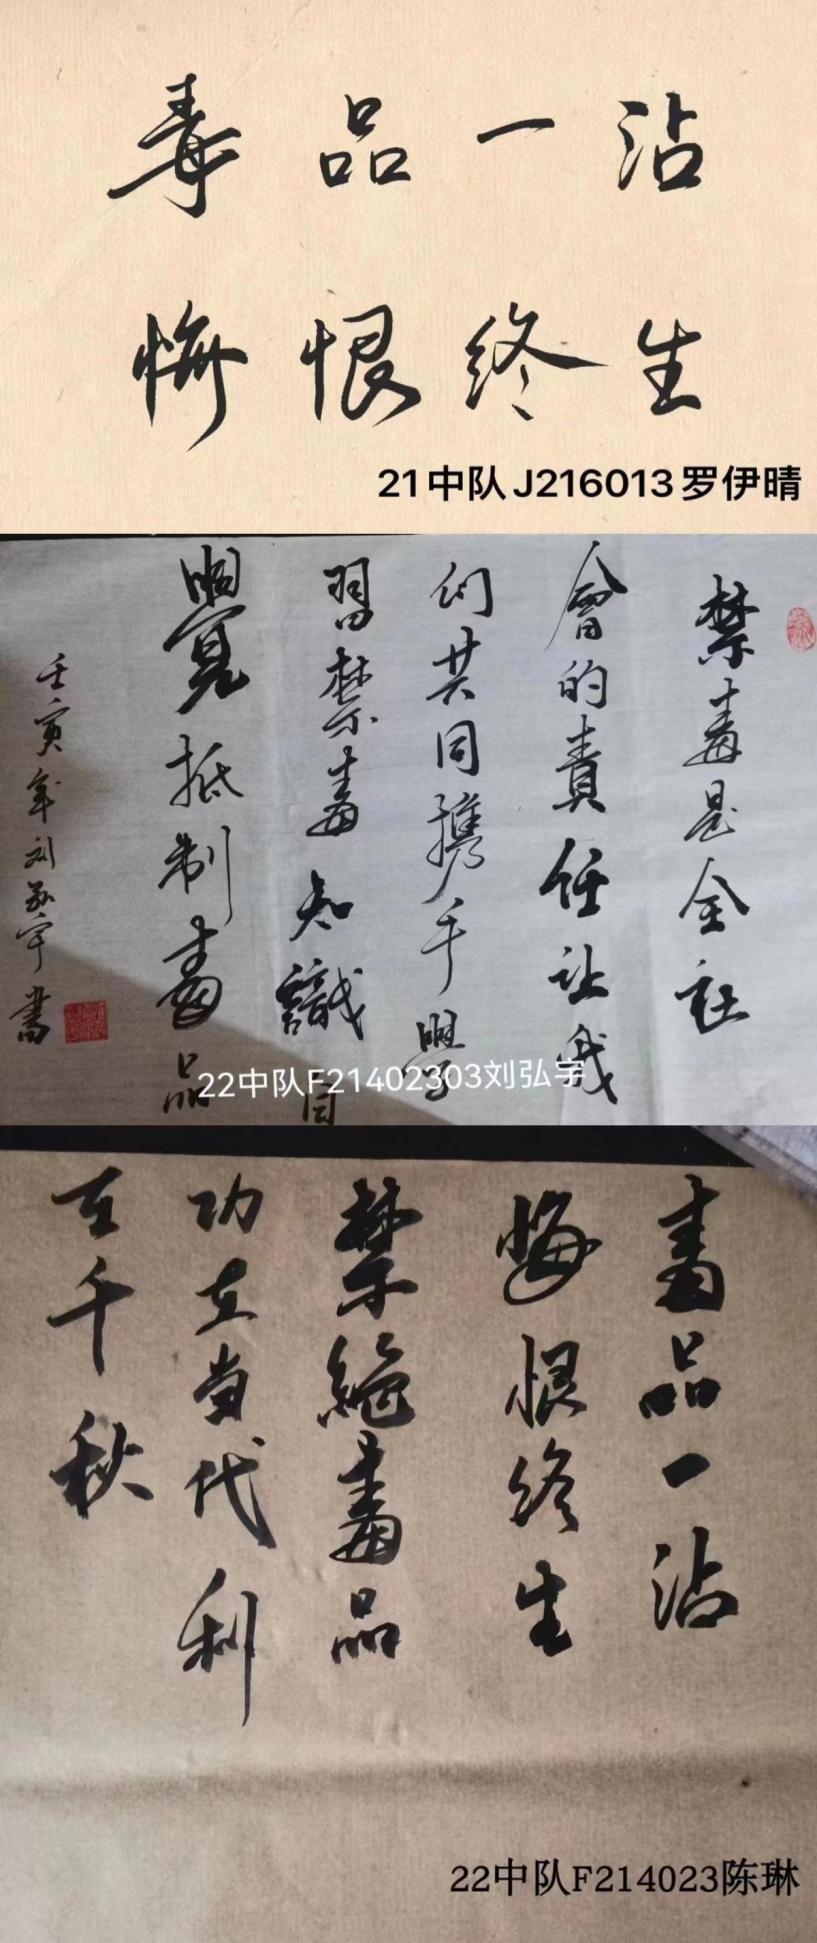 毒品一沾
悔恨终生
21中队J216013罗伊晴
禁毒是全社
會的責任让我
们共同攜手學
習禁毒知識自
覺抵制毒品
壬寅年刘弘宇書
22中队F21402303刘弘宇
毒品一沾
悔恨终生
禁絶毒品
功在当代利
在千秋
22中队F214023陈琳